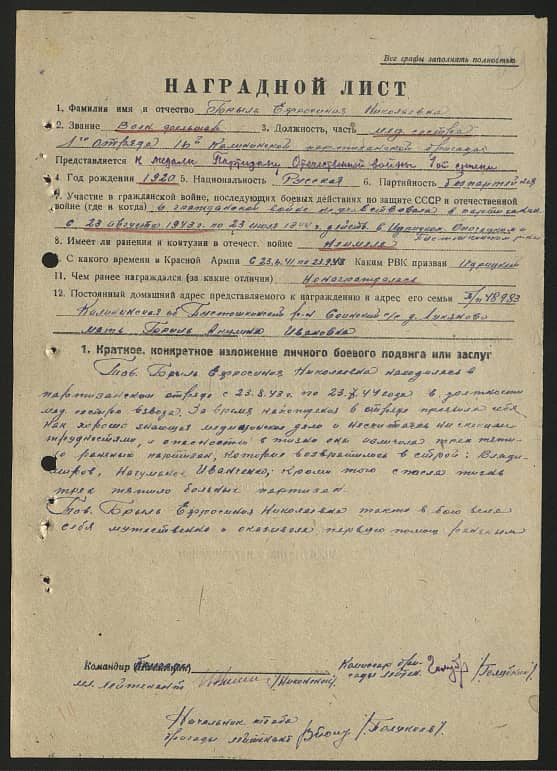 Все графы заполнять полностью
НАГРАДНОЙ ЛИСТ
1. Фамилия имя и отчество Брыль Ефросиния Николаевна
2. Звание Воен фельдшер 3. Должность, часть мед сестра
1го отряда 16й Калининской партизанской бригады
Представляется к медали Партизану Отечественной войны 1ой степени
4. Год рождения 1920 5. Национальность Русская 6. Партийность безпартейная
7. Участие в гражданской войне, последующих боевых действиях по защите СССР и отечественной
войне (где и когда) в гражданской войне не участвовала в партизанах
с 23 августа 1943г. по 23 июля 1944г. действ. в Идрицком, Опочецком и
8. Имеет ли ранения и контузии в отечест. войне Неимела
С какого времени в Красной Армии с 23.6.41 по 23.9.41 Каким РВК призван Идрицкий
11. Чем ранее награждался (за какие отличия) Ненаграждалась
12. Постоянный домашний адрес представляемого к награждению и адрес его семьи п/п 48983
Калининская об Пустошкинский р-н с/с д. Луканово
мать Брыль Акулина Ивановна
1. Краткое, конкретное изложение личного боевого подвига или заслуг
Тов. Брыль Ефросиния Николаевна находилась в
партизанском отряде с 23.8.43г. по 44 года в должности
мед. сестра взвода. За время нахождения в отряде проявила себя
как хорошо знающая медицинское дело и несчитаясь ни с какими
трудностями, и опасностью в жизни она излечила трех тяже-
ло раненых партизан, которые возвратились в строй: Влади-
миров, Иванченко, кроме того спасла жизнь
трех тяжело больных партизан.
Тов. Брыль Ефросиния Николаевна также в бою вела
себя мужественно и оказывала первую помощь раненым
Командир бригады
мл. лейтенант
Комиссар бри-
гады /Голубкин/
Начальник штаба
бригады лейтенант